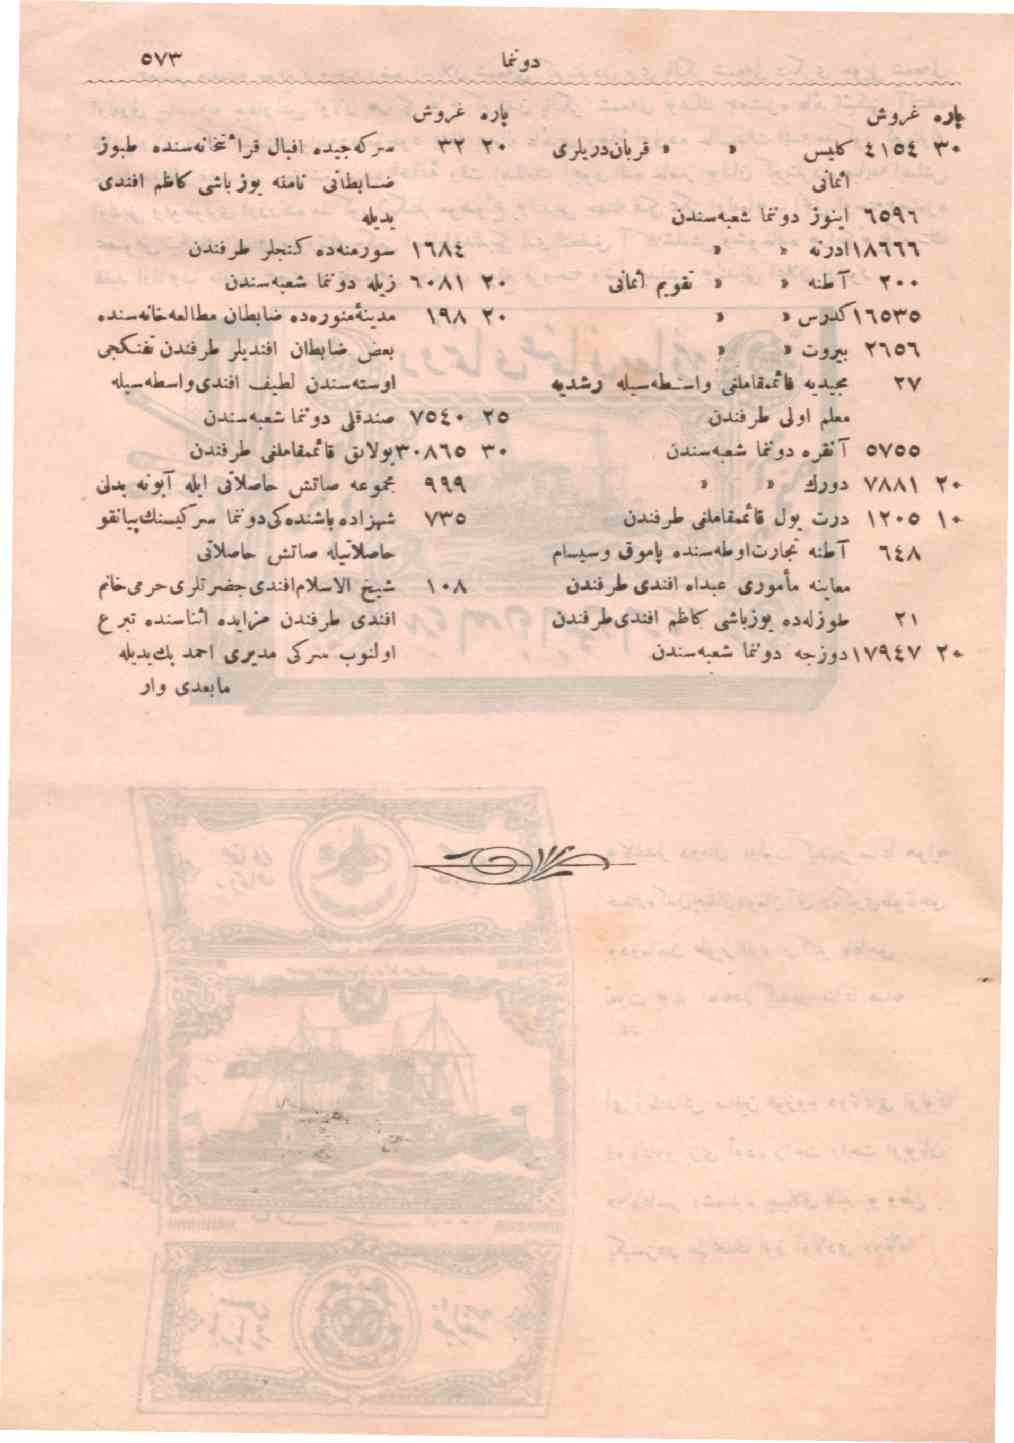 دوننما ٥٧٣
پاره غروش
٣٠ ٤١٥٤ كليس « « قربان دريلرى
اثمانى
٦٥٩٦ اينوز دوننما شعبه‌سندن
١٨٦٦٦ ادرنه « «
٢٠٠ آطنه « « تقويم اثمانى
١٦٥٣٥ كدرس « «
٢٦٥٦ بيروت « «
٢٧ مجيديه قائممقاملغى واسطه‌سيله رشديه
معلم اولى طرفندن
٥٧٥٥ آنقره دوننما شعبه‌سندن
٢٠ ٧٨٨١ دورك « «
١٠ ١٢٠٥ درت يول قائممقاملغى طرفندن
٦٤٨ آطنه تجارت اوطه‌سنده پاموق وسيسام
معاينه مأمورى عبداه افندى طرفندن
٢١ طوزله‌ده يوزباشى كاظم افندى طرفندن
٢٠ ١٧٩٤٧ دوزجه دوننما شعبه‌سندن
پاره غروش
٢٠ ٣٢ سركه‌جيده اقبال قرائتخانه‌سنده طبوز
ضابطانى نامنه يوز باشى كاظم افندى
يديله
١٦٨٤ سورمنه‌ده كنجلر طرفندن
٢٠ ٦٠٨١ زيله دوننما شعبه‌سندن
٢٠ ١٩٨ مدينۀ منوره‌ده ضابطان مطالعه‌خانه‌سنده
بعض ضابطان افنديلر طرفندن تفنكجى
اوسته‌سندن لطيف افندى واسطه‌سيله
٢٥ ٧٥٤٠ صندقلى دوننما شعبه‌سندن
٣٠ ٣٠٨٦٥ بولانق قائممقاملغى طرفندن
٩٩٩ مجموعه صاتش حاصلاتى ايله آبونه بدلى
٧٣٥ شهزاده باشنده‌كى دوننما سركيسنك پيانقو
حاصلاتيله صاتش حاصلاتى
١٠٨ شيخ الاسلام افندى حضرتلرى حرمى خانم
افندى طرفندن مزايده اثناسنده تبرع
اولنوب سركى مديرى احمد بك يديله
مابعدى وار